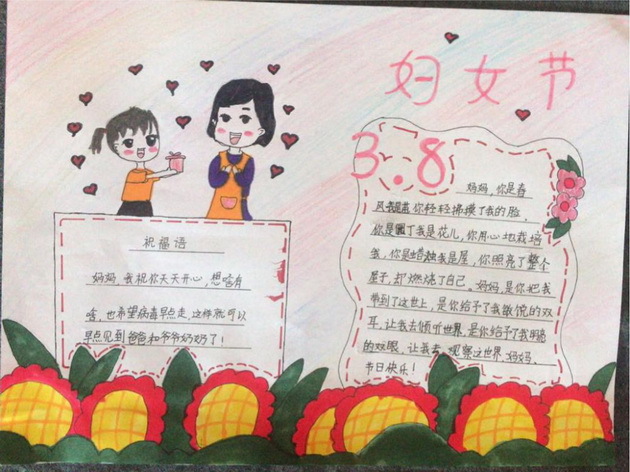 妇女节
3.8
祝福语
妈妈，我祝你天天开心，想啥有
啥，也希望病毒早点走，这样就可以
早点见到爸爸和爷爷奶奶了！
妈妈，你是春
风，你轻轻拂摸了我的脸，
你是园丁我是花儿，你用心地栽培
我，你是蜡烛我是屋，你照亮了整个
屋子，却燃烧了自己。妈妈，是你把我
带到了这世上，是你给予了我敏锐的双
耳，让我去倾听世界，是你给予了我明亮
的双眼，让我去观察这世界，妈妈，
节日快乐！